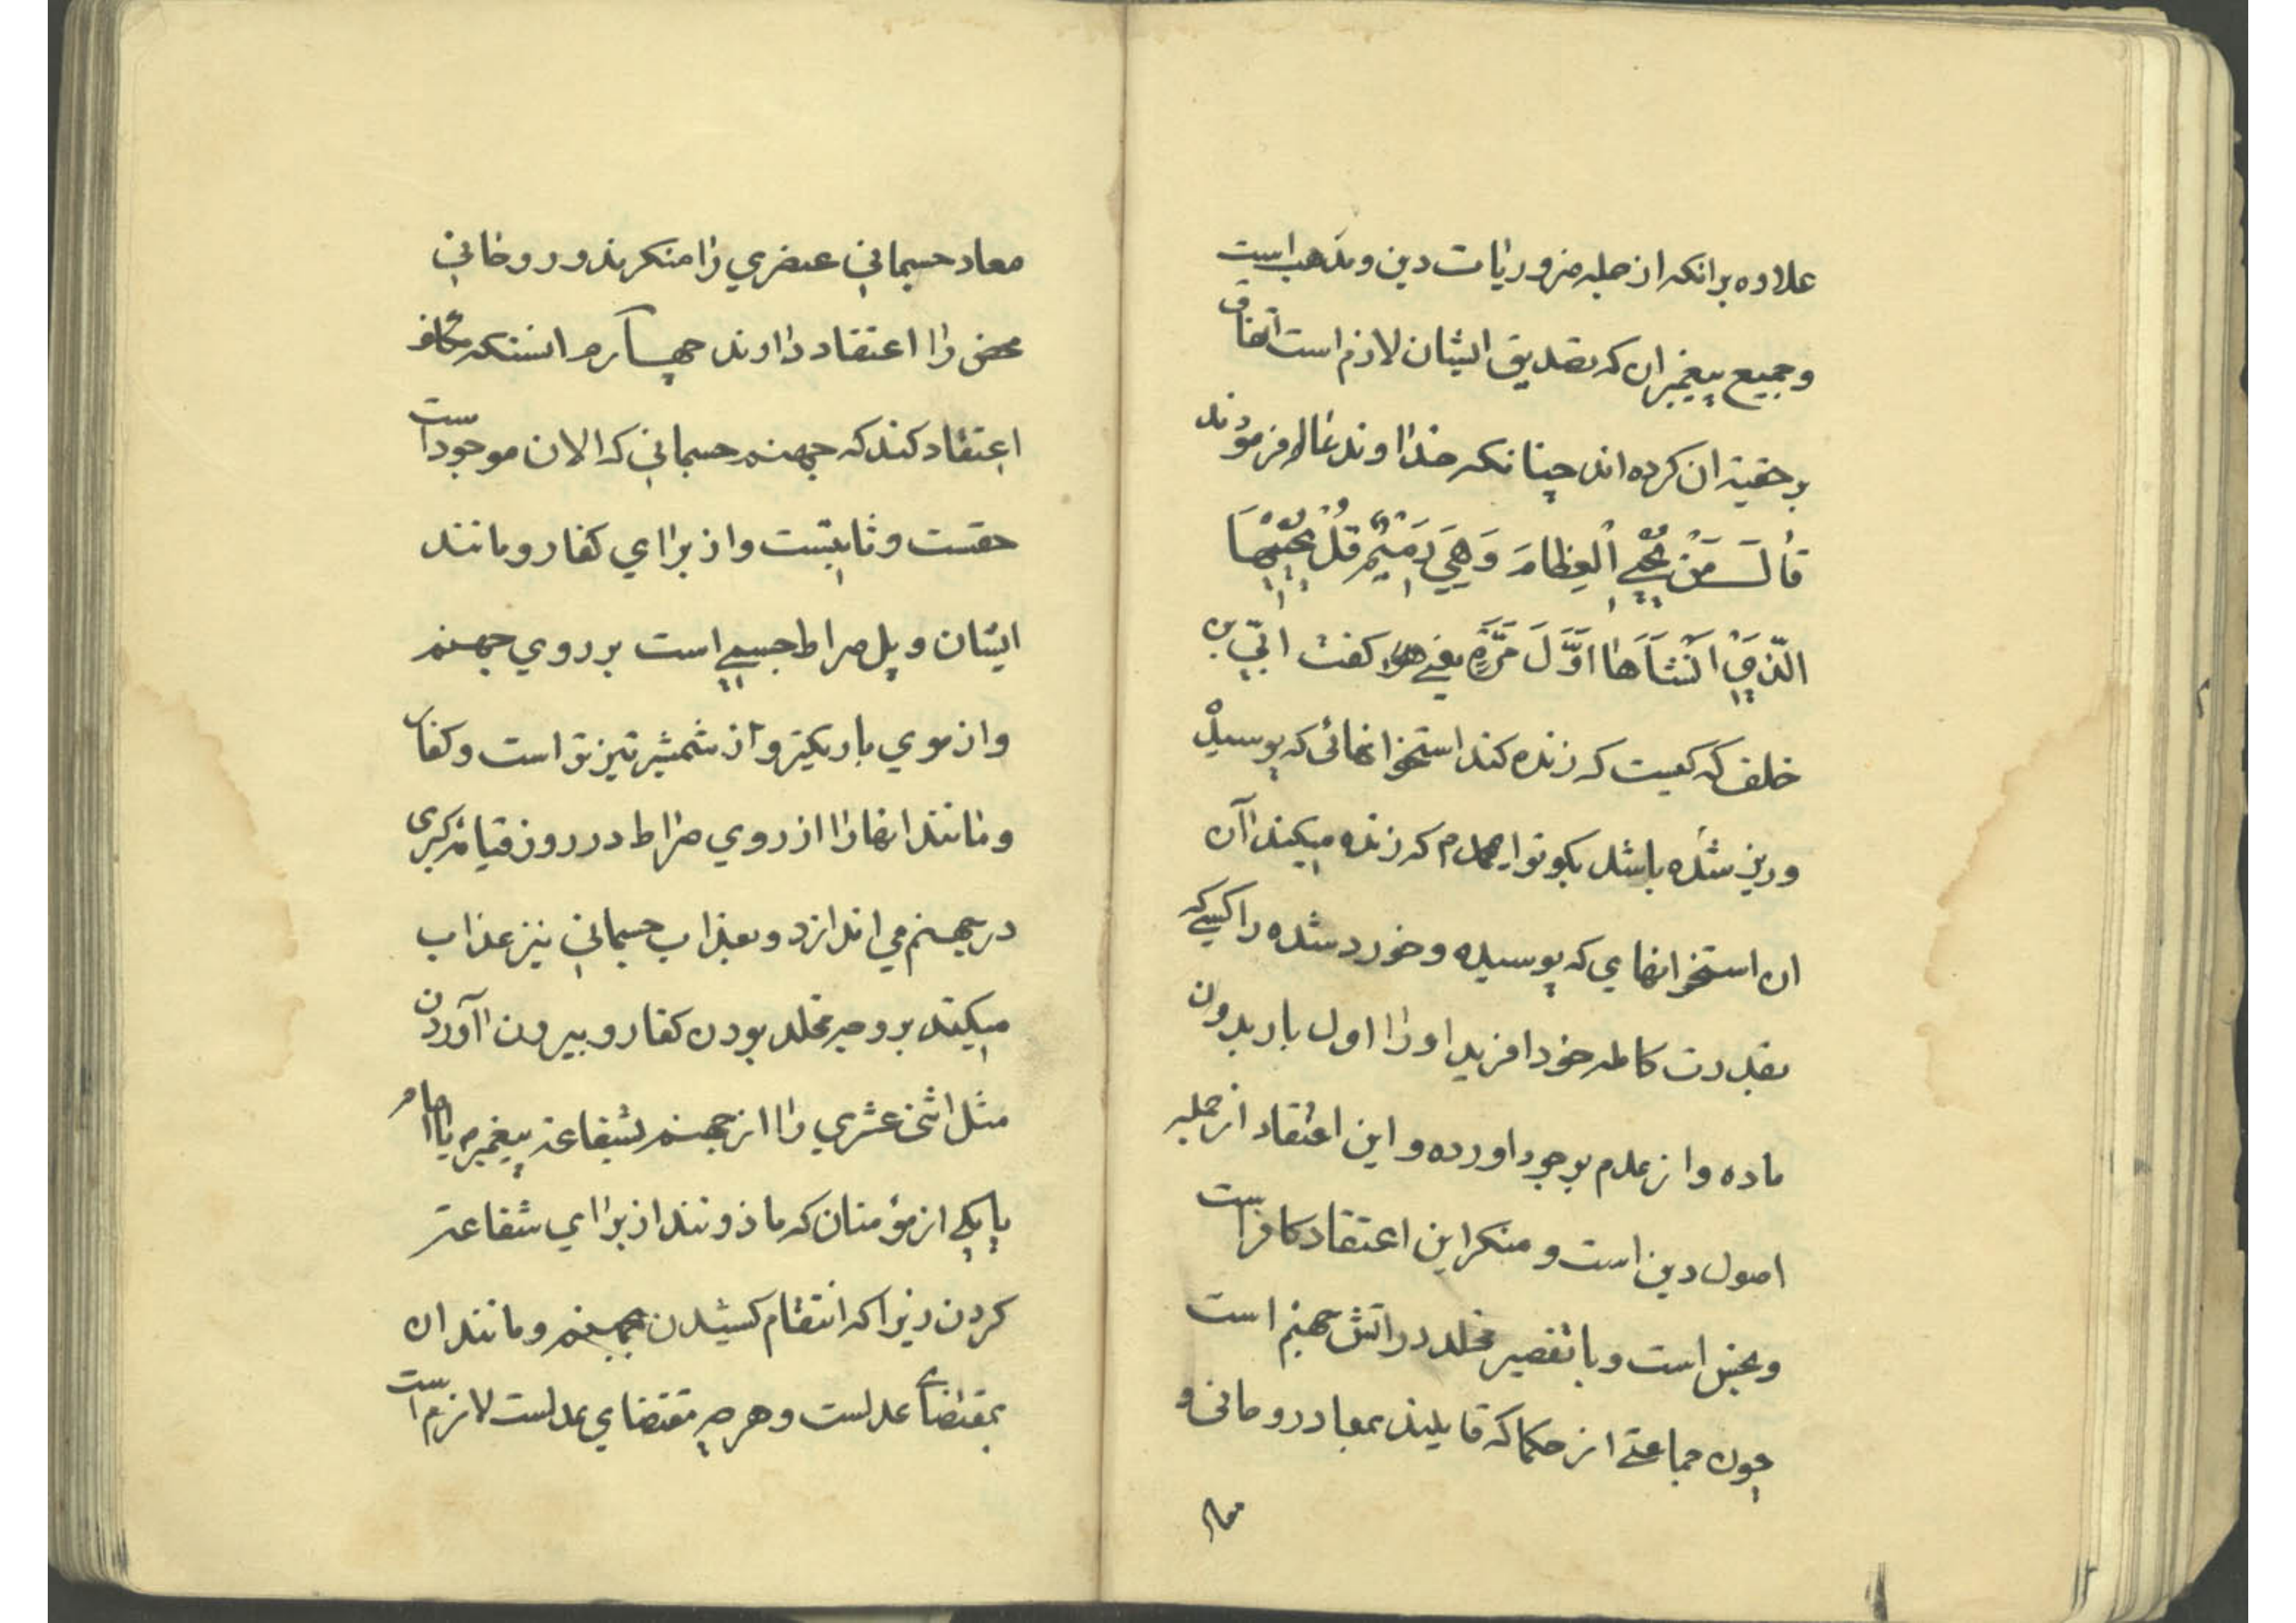 علاوه برانکه از جمله ضروریات دین و مذهب است
و جمیع پیغمبران که تصدیق ایشان لازم است اتفاق
بر حقیة ان کرده اند چنانکه خداوند عالم فرمودند
قٰالَ مَنْ یُحْیِی الْعِظٰامَ وَهِیَ رَمِیْمٌ قُلْ یُحْیِیْهَا
الَّذِیْ اَنْشَاَهٰا اَوَّلَ مَرَّةٍ یعنی کفت ابّی بن
خلف که کیست که زنده کند استخوانهائی که پوسیده
و ریز شده باشد بکو تو ای محمدم که زنده میکند اآن
ان استخوانهای که پوسیده و خورد شده را کسی که
بقدرت کامله خود افرید او را اول بار بدون
ماده و از عدم بوجود اورده و این اعتقاد از جمله
اصول دین است و منکر این اعتقاد کافر است
و نجس است و با تقصیر مخلد در اتش جهنم است
چون جماعتی از حکما که قایلند بمعاد روحانی و
معاد
معاد جسمانی عنصری را منکرند و روحانی
محض را اعتقاد دااوند چهارم انستکه مکلف
اعتقاد کند که جهنم جسمانی که الان موجود است
حقست و ثابتست و از برااي کفار و مانند
ایشان و پل صراط جسمی است بر روي جهنم
و از موي باریکتر و از شمشیر تیزتر است و کفار
و مانند انها را از روي صراط در روز قیامة کبری
در جهنم می اندازد و بعذاب جسمانی نیز عذاب
میکند بر وجه مخلد بودن کفار و بیرون اآوردن
مثل اثنی عشري را از جهنم بشفاعة پیغمبر ص یا امام
یا یکی از مؤمنان که ماذونند از برااي شفاعة
کردن زیرا که انتقام کشیدن بجهنم و مانند ان
بمقتضاي عدلست و هر چه مقتضاي عدلست لازم است